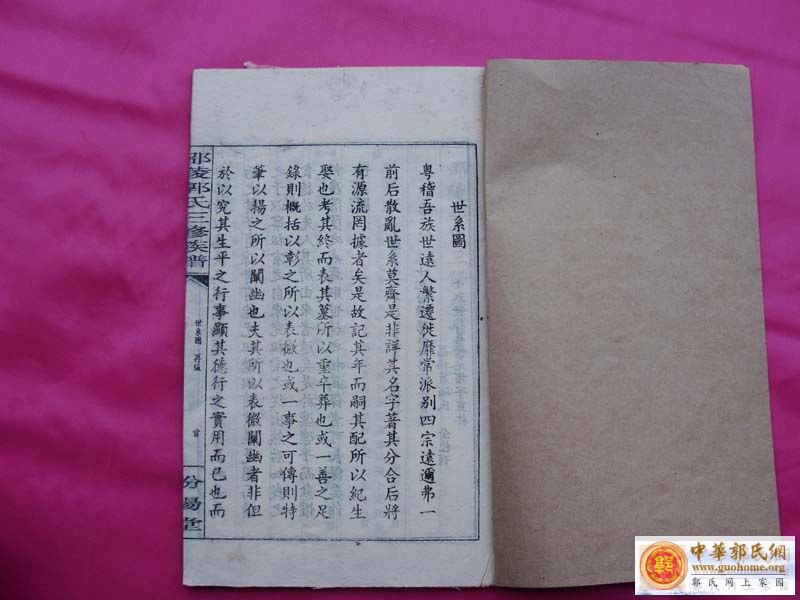 世系圖
粵稽吾族世遠人繁遷徙靡常派別四宗遠邇弗一
前后散亂世系莫齊是非詳其名字著其分合后將
有源流罔據者矣是故記其年而嗣其配所以紀生
娶也考其終而表其墓所以重卒葬也或一善之足
錄則概括以彰之所以表微也或一事之可傳則特
筆以揚之所以闡幽也夫其所以表微闡幽者非但
於以究其生平之行事顯其德行之實用而已也而
邵陵郭氏三修族譜
世系圖 再版
首
汾陽堂
中華郭氏網
www.guohome.org
郭氏网上家园